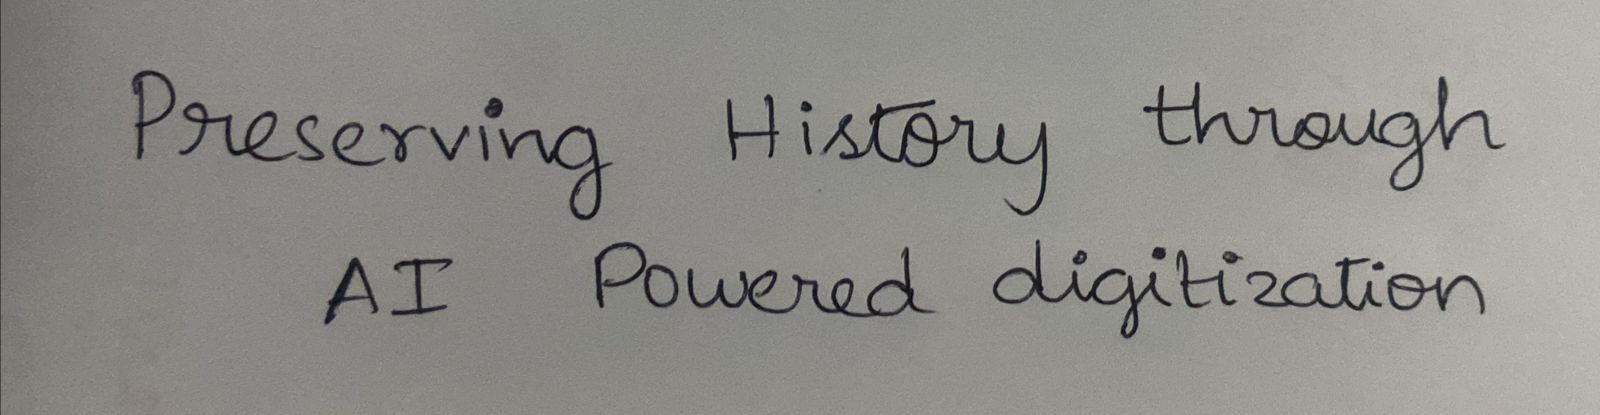 Preserving History through
AI Powered digitization